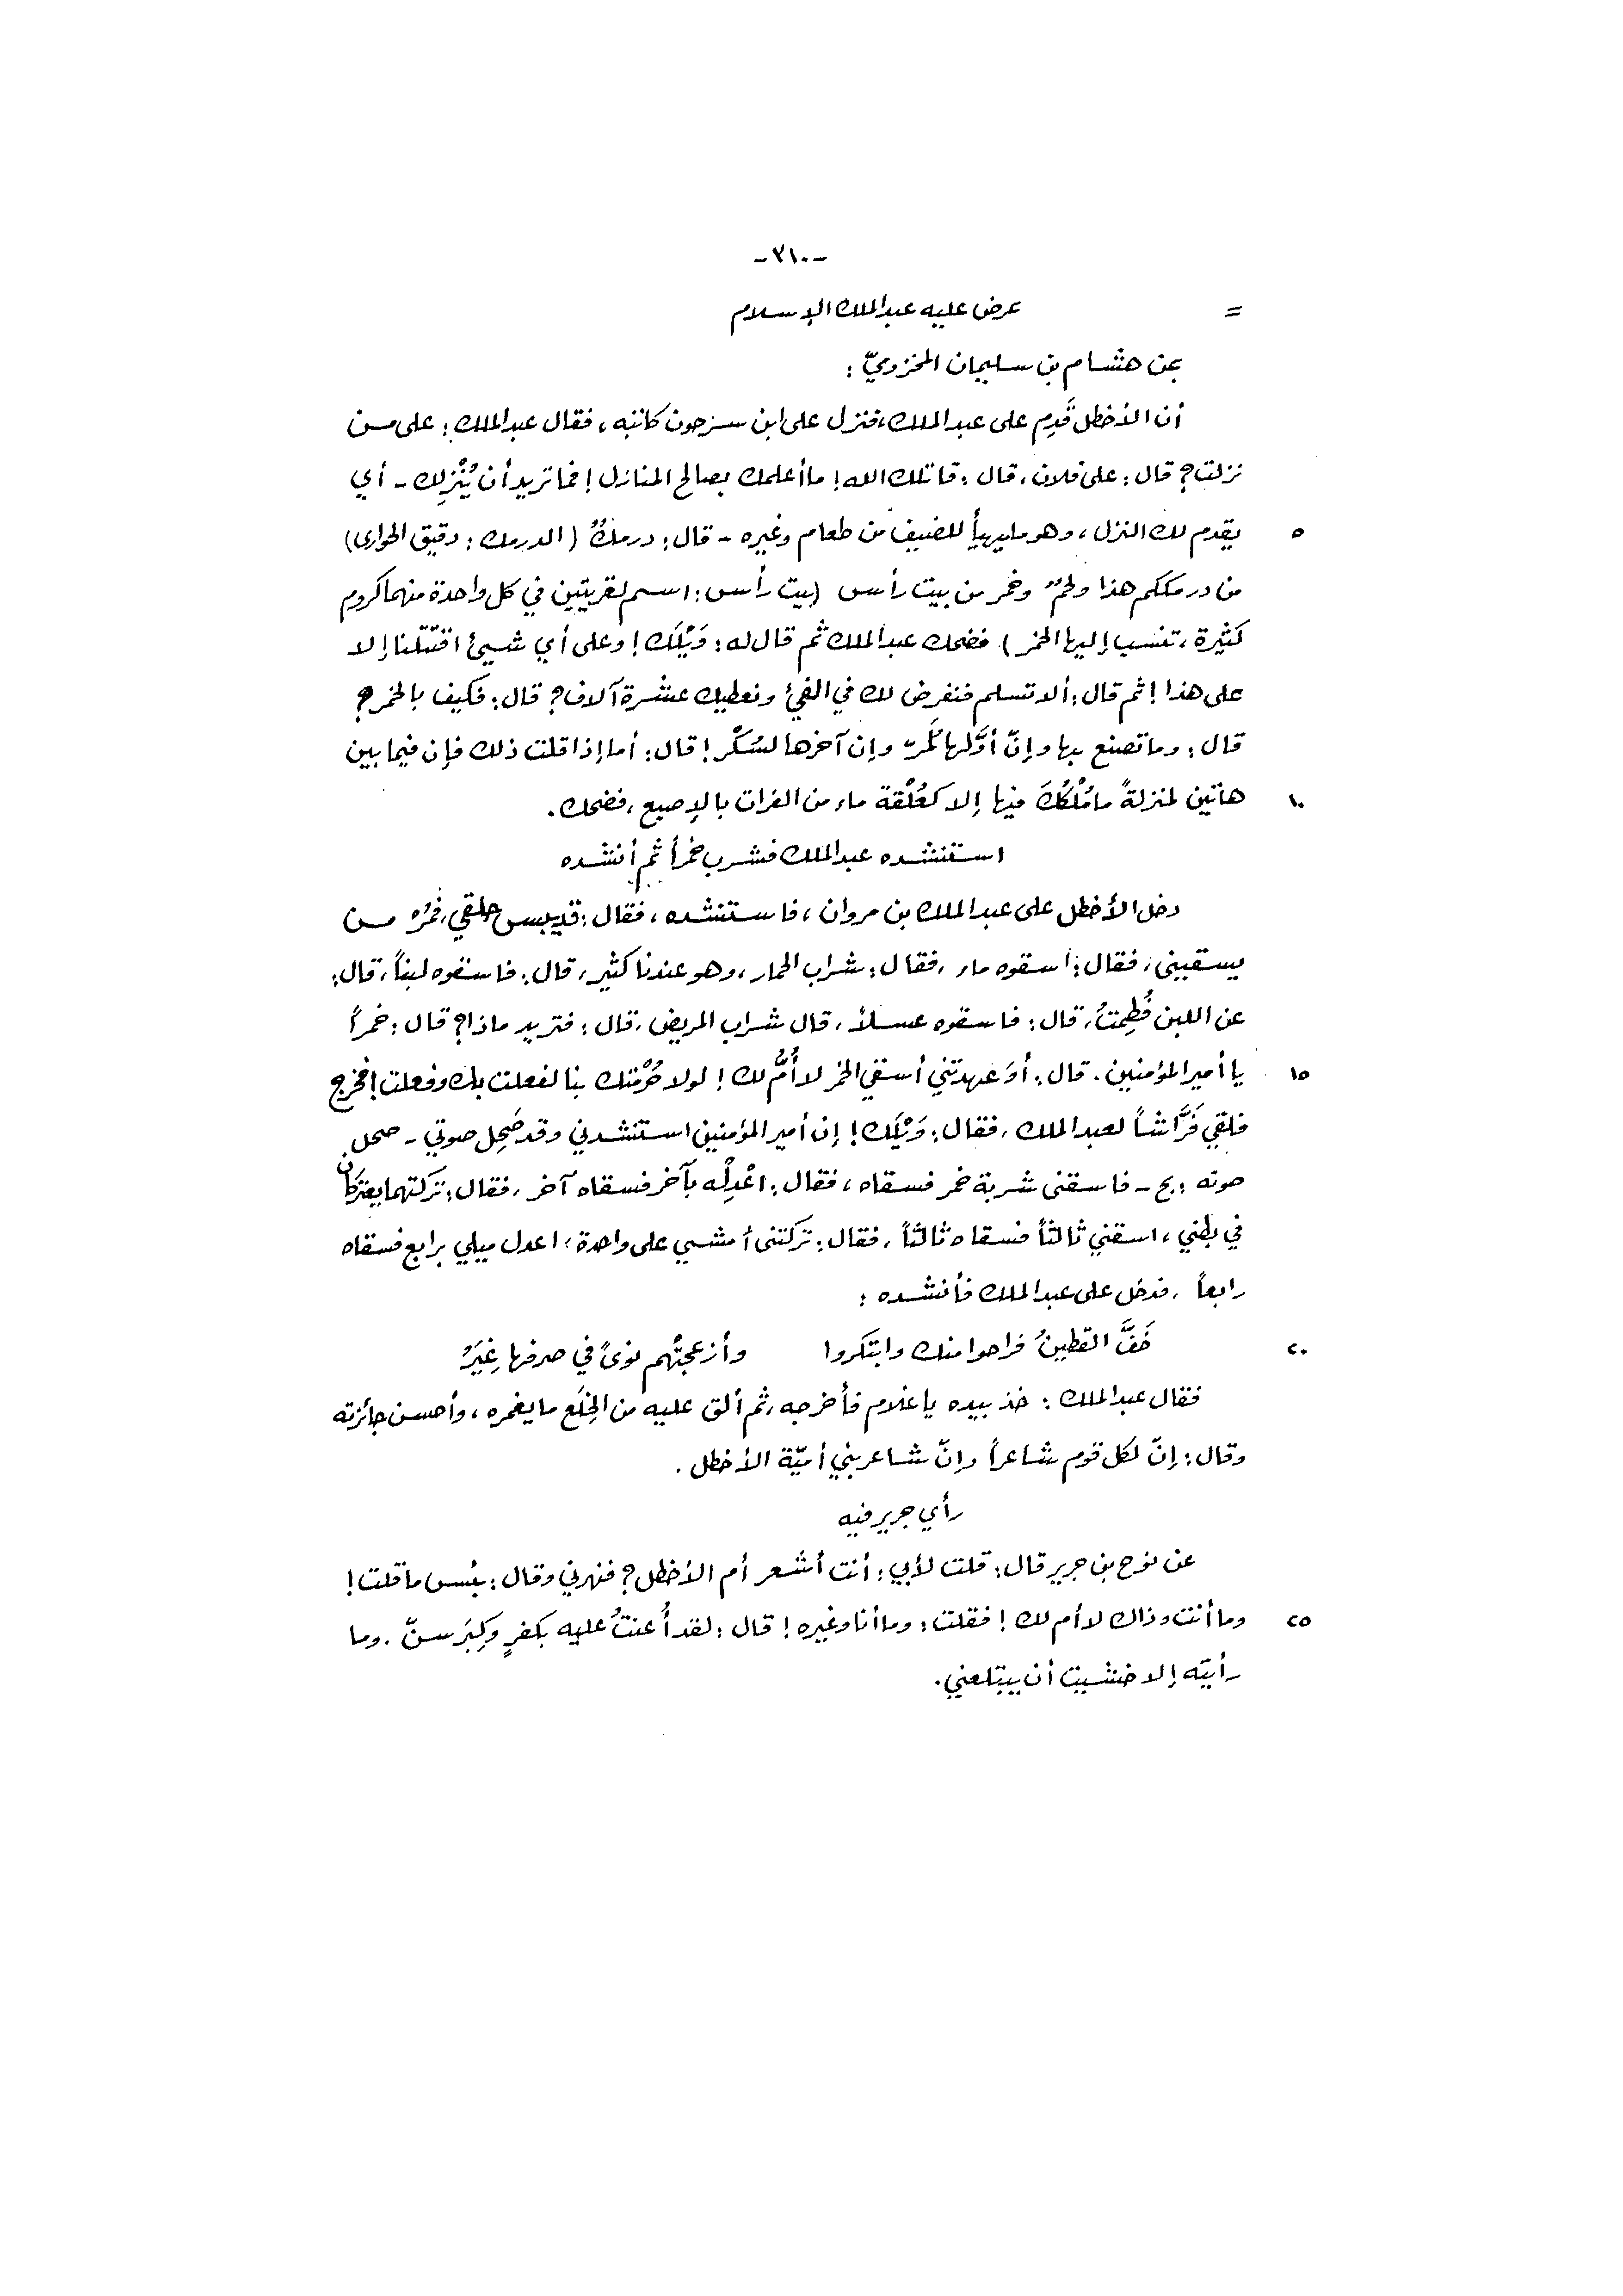 -٣١٠-
= عرض عليه عبد الملك الإسلام
عن هشام بن سليمان المخزوميّ :
أن الأخطل قَدِم على عبد الملك، فنزل على ابن سرجون كاتبه ، فقال عبد الملك : على من
نزلت ؟ قال : على فلان ، قال : قاتلك الله ! ما أعلمك بصالح المنازل ! فما تريد أن يُنْزِلك - أي
٥ يقدم لك النزل ، وهو ما يهيأ للضيف من طعام وغيره - قال : درمكٌ ( الدرمك : دقيق الحوارى )
من درمككم هذا ولحمٌ وخمر من بيت رأس ( بيت رأس : اسم لقريتين في كل واحدة منهما كروم
كثيرة ، تنسب إليها الخمر ) . فضحك عبد الملك ثم قال له : وَيْلَك ! وعلى أي شيئ اقتتلنا إلا
على هذا ! ثم قال : ألا تسلم فنفرض لك في الفيئ ونعطيك عشرة آلاف ؟ قال : فكيف بالخمر ؟
قال : وما تصنع بها وإنّ أوَّلها لَمُرّ وإن آخرها لسُكْر ! قال : أما إذا قلت ذلك فإن فيما بين
١٠ هاتين لمنزلةً ما مُلْكُكَ فيها إلا كعُلْقة ماء من الفرات بالإصبع ، فضحك .
استنشده عبد الملك فشرب خمراً ثم أنشده
دخل الأخطل على عبد الملك بن مروان ، فاستنشده ، فقال : قد يبس حلقي ، فمُرْ من
يسقيني ، فقال : اسقوه ماء ، فقال : شراب الحمار ، وهو عندنا كثير ، قال : فاسقوه لبناً ، قال :
عن اللبن فُطِمتُ ، قال : فاسقوه عسلاً ، قال شراب المريض ، قال : فتريد ماذا ؟ قال : خمراً
١٥ يا أمير المؤمنين . قال : أوَ عهدتني أسقي الخمر لا أُمَّ لك ! لولا حُرْمتك بنا لفعلت بك وفعلت ! فخرج
فلقي فَرَّاشاً لعبد الملك ، فقال : وَيْلَك ! إن أمير المؤمنين استنشدني وقد صَحِل صوتي - صحل
صوته : بح - فاسقني شربة خمر فسقاه ، فقال : اعْدِلْه بآخر فسقاه آخر ، فقال : تركتهما يعتركان
في بطني ، اسقني ثالثاً فسقاه ثالثاً ، فقال : تركتني أمشي على واحدة ، اعدل ميلي برابع فسقاه
رابعاً ، فدخل على عبد الملك فأنشده :
٢٠ خَفَّ القطينُ فراحوا منك وابتكروا وأزعجتْهم نوىً في صرفها غِيَرُ
فقال عبد الملك : خذ بيده يا غلام فأخرجه ، ثم ألق عليه من الخِلَع ما يغمره ، وأحسن جائزته
وقال : إنّ لكل قوم شاعراً وإنّ شاعر بني أميّة الأخطل .
رأي جرير فيه
عن نوح بن جرير قال : قلت لأبي : أنت أشعر أم الأخطل ؟ فنهرني وقال : بئس ما قلت !
٢٥ وما أنت وذاك لا أم لك ! فقلت : وما أنا وغيره ! قال : لقد أُعنتُ عليه بكفرٍ وكِبَر سنّ . وما
رأيته إلا خشيت أن يبتلعني .